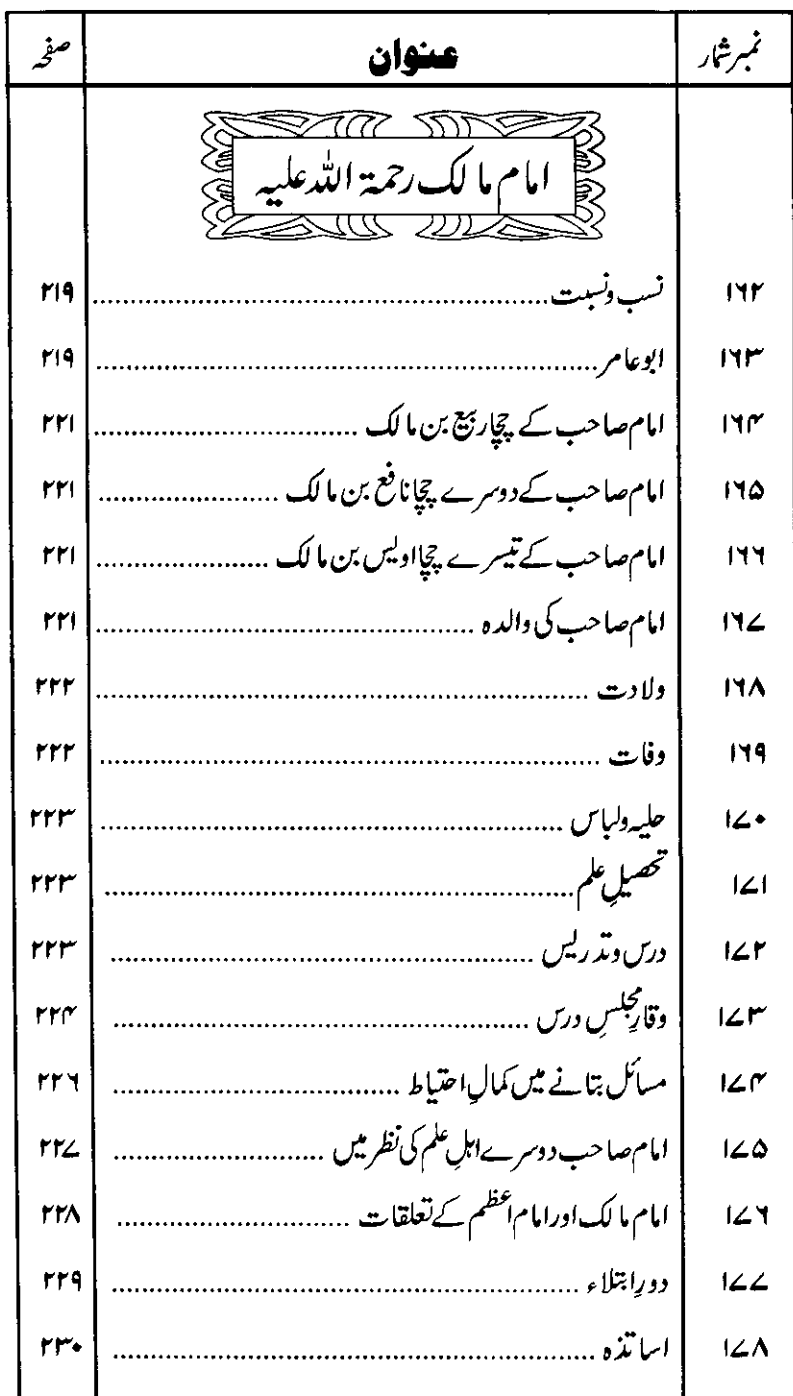 نمبر شمار عنوان صفحہ
امام مالک رحمۃ اللہ علیہ
۱۶۲ نسب ونسبت ................................ ۲۱۹
۱۶۳ ابو عامر ................................ ۲۱۹
۱۶۴ امام صاحب کے چچا ربیع بن مالک ................................ ۲۲۱
۱۶۵ امام صاحب کے دوسرے چچا نافع بن مالک ................................ ۲۲۱
۱۶۶ امام صاحب کے تیسرے چچا اویس بن مالک ................................ ۲۲۱
۱۶۷ امام صاحب کی والدہ ................................ ۲۲۱
۱۶۸ ولادت ................................ ۲۲۲
۱۶۹ وفات ................................ ۲۲۲
۱۷۰ حلیہ ولباس ................................ ۲۲۳
۱۷۱ تحصیلِ علم ................................ ۲۲۳
۱۷۲ درس وتدریس ................................ ۲۲۳
۱۷۳ وقارِ مجلسِ درس ................................ ۲۲۴
۱۷۴ مسائل بتانے میں کمالِ احتیاط ................................ ۲۲۶
۱۷۵ امام صاحب دوسرے اہلِ علم کی نظر میں ................................ ۲۲۷
۱۷۶ امام مالک اور امام اعظم کے تعلقات ................................ ۲۲۸
۱۷۷ دورِ ابتلاء ................................ ۲۲۹
۱۷۸ اساتذہ ................................ ۲۳۰